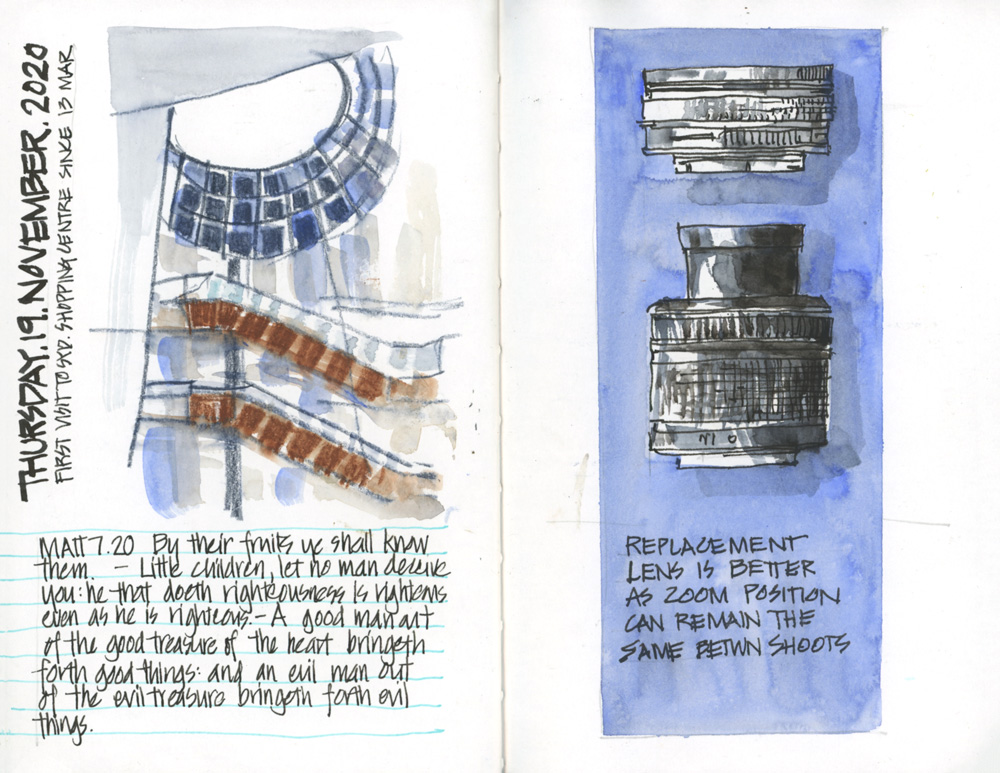 THURSDAY.19.NOVEMBER.2020
FIRST VISIT TO SXD. SHOPPING CENTRE SINCE 13 MAR
MATT 7.20 By their fruits ye shall know
them. – Little children, let no man deceive
you: he that doeth righteousness is righteous
even as he is righteous. – A good man out
of the good treasure of the heart bringeth
forth good things: and an evil man out
of the evil treasure bringeth forth evil
things.
REPLACEMENT
LENS IS BETTER
AS ZOOM POSITION
CAN REMAIN THE
SAME BETWN SHOOTS